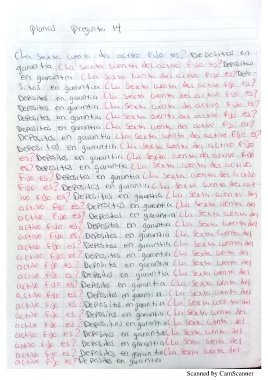 Planas Pregunta 14
¿La Sexta cuenta del activo Fijo es? Depositos en
garantia ¿La Sexta cuenta del activo Fijo es? Depositos
en garantia ¿La Sexta cuenta del activo Fijo es? Depo-
sitos en garantia ¿La Sexta cuenta del activo Fijo es?
Depositos en garantia ¿La Sexta cuenta del activo Fijo es?
Depositos en garantia ¿La Sexta cuenta del activo Fijo es?
Depositos en garantia ¿La Sexta cuenta del activo Fijo es?
Depositos en garantia ¿La Sexta cuenta del activo Fijo
es? Depositos en garantia ¿La Sexta cuenta del activo Fijo
es? Depositos en garantia ¿La Sexta cuenta del activo
Fijo es? Depositos en garantia ¿La Sexta cuenta del activo
Fijo es? Depositos en garantia ¿La Sexta cuenta del ac-
activo Fijo es? Depositos en garantia ¿La Sexta cuenta del
activo Fijo es? Depositos en garantia ¿La Sexta cuenta del
activo Fijo es? Depositos en garantia ¿La Sexta cuenta del
activo Fijo es? Depositos en garantia ¿La Sexta cuenta del
activo Fijo es? Depositos en garantia ¿La Sexta cuenta del
activo Fijo es? Depositos en garantia ¿La Sexta cuenta del
activo Fijo es? Depositos en garantia ¿La Sexta cuenta del
activo Fijo es? Depositos en garantia ¿La Sexta cuenta del
activo Fijo es? Depositos en garantia ¿La Sexta cuenta del
activo Fijo es? Depositos en garantia ¿La Sexta cuenta del
activo Fijo es? Depositos en garantia ¿La Sexta cuenta del
activo Fijo es? Depositos en garantia ¿La Sexta cuenta del
activo Fijo es? Depositos en garantia
Scanned by CamScanner